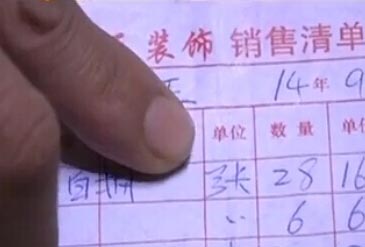 装饰 销售清单
14年9
单位 数量 单价
张 28 16
〃 6 6